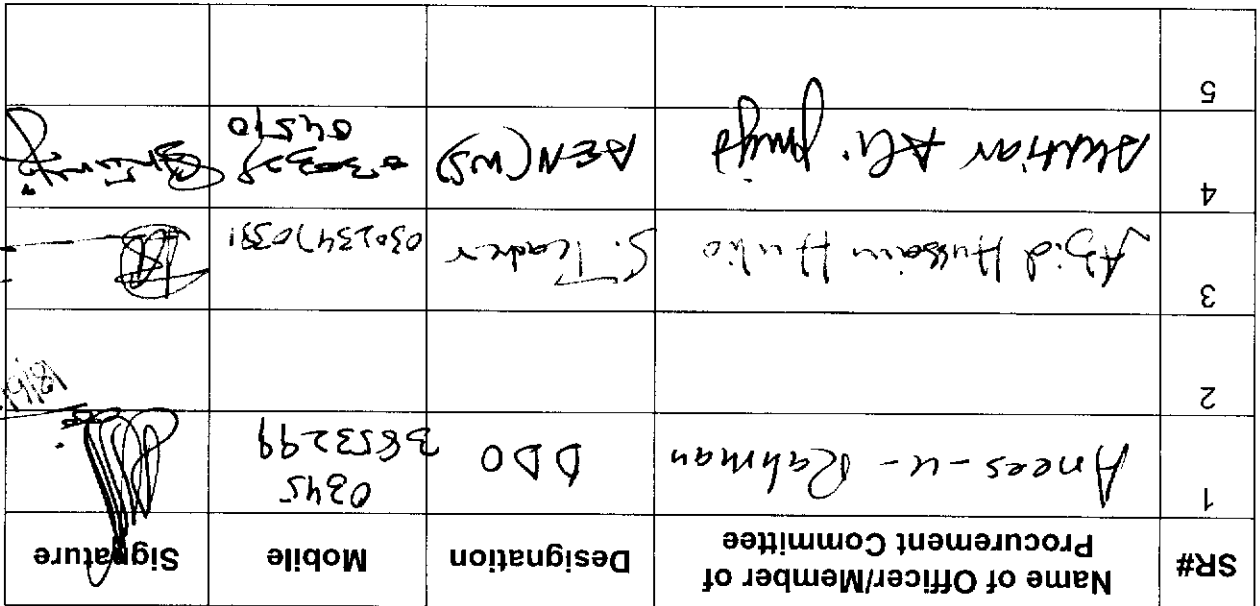 SR#
Name of Officer/Member of
Procurement Committee
Designation
Mobile
Signature
1
Anees-u-Rahman
DDO
0345
3653299
2
3
Abid Hussain Hulio
S. Teacher
03023470391
4
Ali
AEN (WS)
04510
5